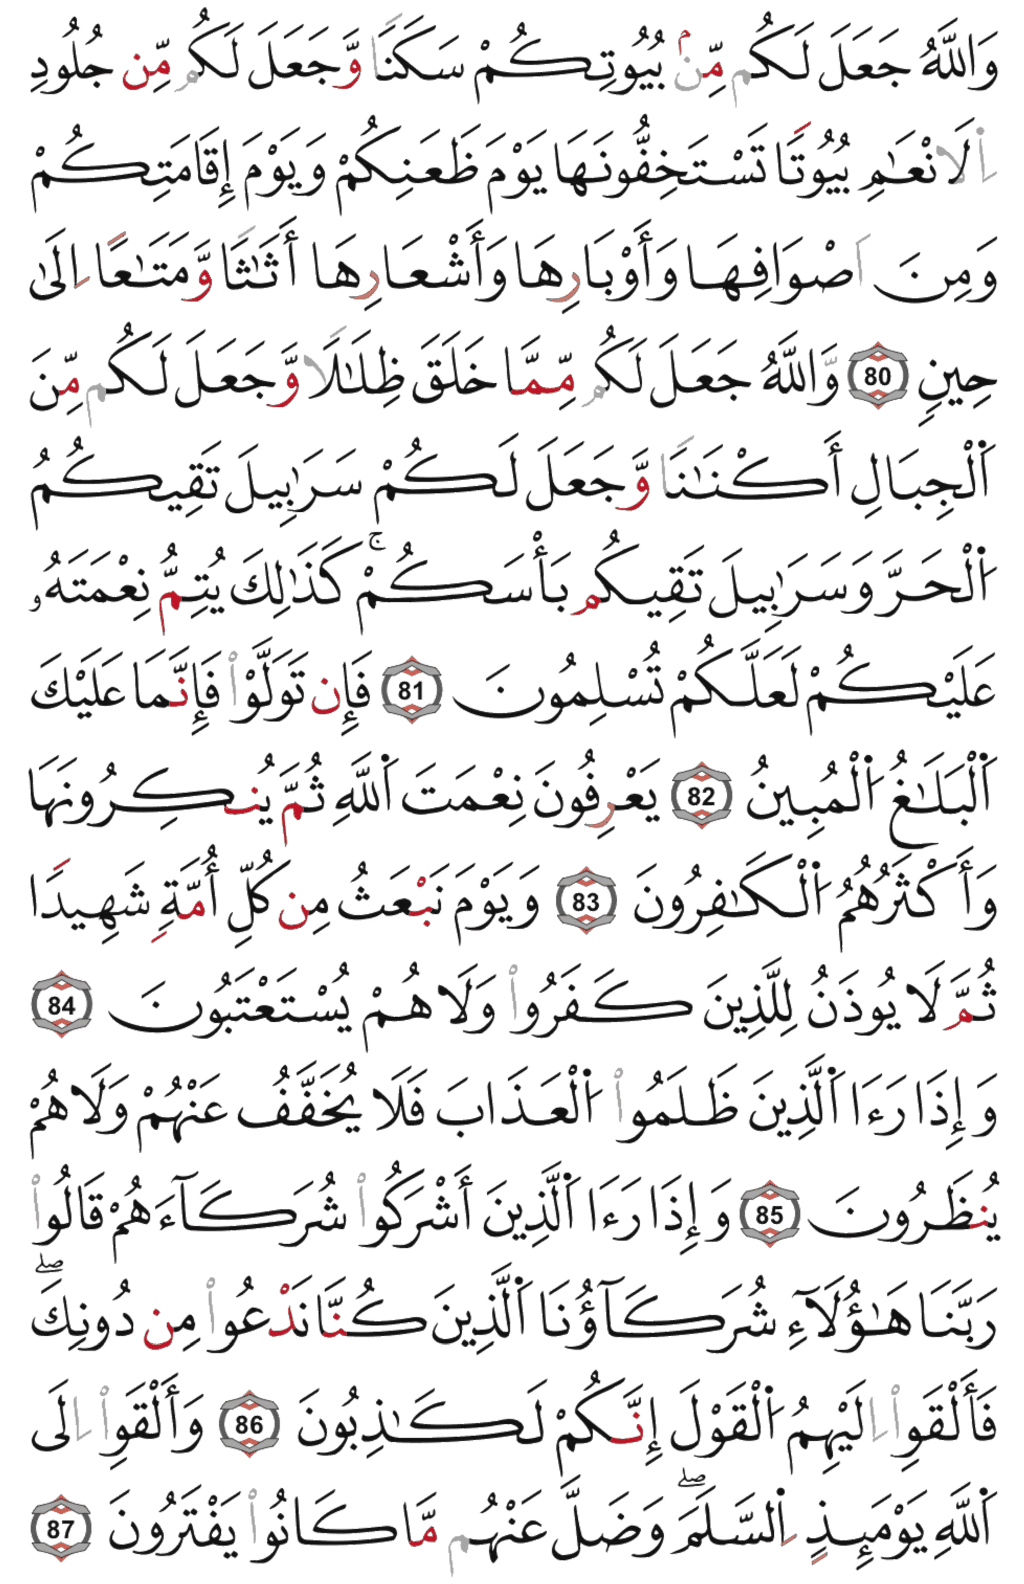 وَاللَّهُ جَعَلَ لَكُم مِّنۢ بُيُوتِكُمْ سَكَنًا وَّجَعَلَ لَكُم مِّن جُلُودِ
اِ۬لَانْعَٰمِ بُيُوتًا تَسْتَخِفُّونَهَا يَوْمَ ظَعَنِكُمْ وَيَوْمَ إِقَامَتِكُمْ
وَمِنَ اَصْوَافِهَا وَأَوْبَارِهَا وَأَشْعَارِهَا أَثَٰثًا وَّمَتَٰعًا اِلَىٰ
حِينٍ 80 وَّاللَّهُ جَعَلَ لَكُم مِّمَّا خَلَقَ ظِلَٰلًا وَّجَعَلَ لَكُم مِّنَ
اَ۬لْجِبَالِ أَكْنَٰنًا وَّجَعَلَ لَكُمْ سَرَٰبِيلَ تَقِيكُمُ
اُ۬لْحَرَّ وَسَرَٰبِيلَ تَقِيكُم بَأْسَكُمْ ۚ كَذَٰلِكَ يُتِمُّ نِعْمَتَهُۥ
عَلَيْكُمْ لَعَلَّكُمْ تُسْلِمُونَ 81 فَإِن تَوَلَّوْا۟ فَإِنَّمَا عَلَيْكَ
اَ۬لْبَلَٰغُ اُ۬لْمُبِينُ 82 يَعْرِفُونَ نِعْمَتَ اَ۬للَّهِ ثُمَّ يُنكِرُونَهَا
وَأَكْثَرُهُمُ اُ۬لْكَٰفِرُونَ 83 وَيَوْمَ نَبْعَثُ مِن كُلِّ أُمَّةٍ شَهِيدًا
ثُمَّ لَا يُوذَنُ لِلَّذِينَ كَفَرُوا۟ وَلَا هُمْ يُسْتَعْتَبُونَ 84
وَإِذَا رَءَا اَ۬لَّذِينَ ظَلَمُوا۟ اُ۬لْعَذَابَ فَلَا يُخَفَّفُ عَنْهُمْ وَلَا هُمْ
يُنظَرُونَ 85 وَإِذَا رَءَا اَ۬لَّذِينَ أَشْرَكُوا۟ شُرَكَآءَهُمْ قَالُوا۟
رَبَّنَا هَٰؤُلَآءِ شُرَكَآؤُنَا اَ۬لَّذِينَ كُنَّا نَدْعُوا۟ مِن دُونِكَ ۖ
فَأَلْقَوِا۟ اِلَيْهِمُ اُ۬لْقَوْلَ إِنَّكُمْ لَكَٰذِبُونَ 86 وَأَلْقَوِا۟ اِلَى
اَ۬للَّهِ يَوْمَئِذٍ اِ۬لسَّلَمَ ۖ وَضَلَّ عَنْهُم مَّا كَانُوا۟ يَفْتَرُونَ 87